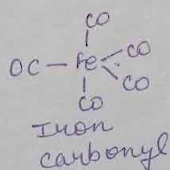 CO
OC — Fe CO
CO
CO
Iron
carbonyl